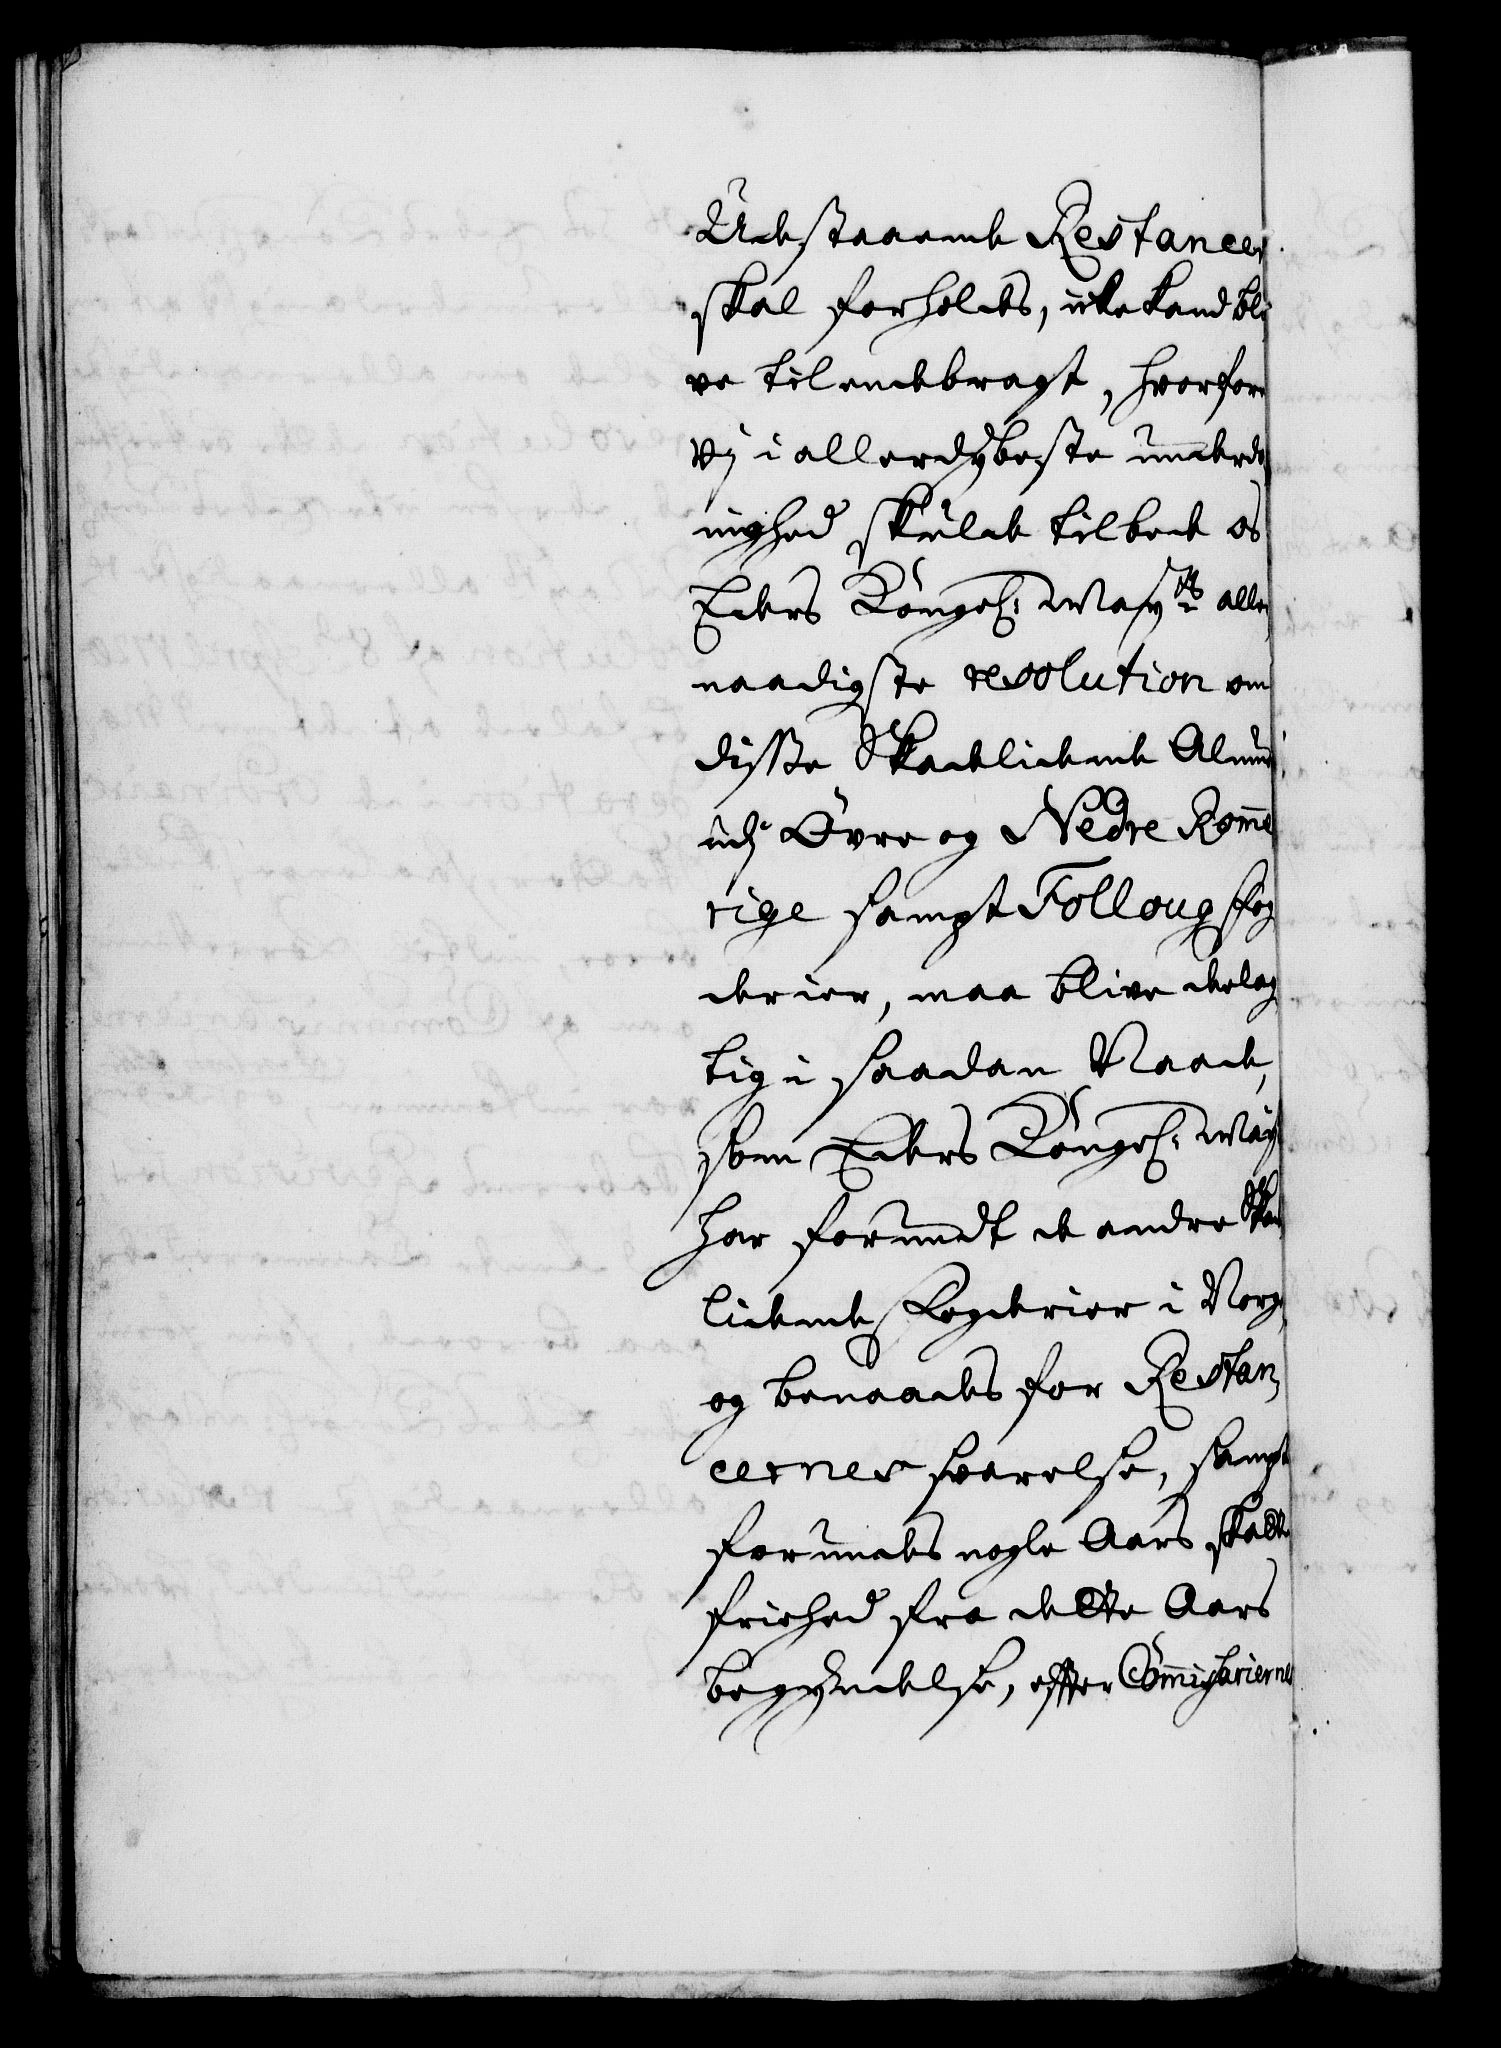 Udestaaende Restancer
skal forholdes, icke kand bli
ve tilendebragt, hvorfore
Vi i allerdybeste underda
nighed skulde tilbede os
Eders Kongel: Mayts aller
naadigste resolution om
disse Skadelidende Almue
udj Øvre og Nedre Rome
rige sampt Folloug fog
derier, maa blive delag
tig i saadan Naade,
som Eders Kongel: May
har forundt de andre Skade
lidende Fogderier i Norge,
og benaades for Restan,
cernes svarelse, sampt
forundes nogle Aars skatte
friehed fra dette Aars
begyndelse, effter Commissariernes